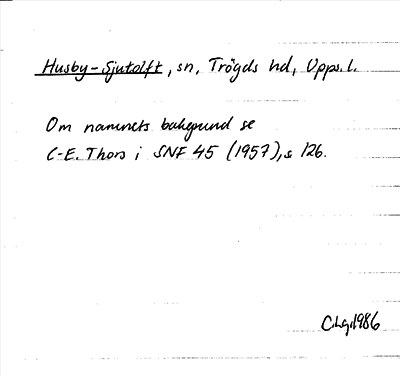 Husby-Sjutolft, sn, Trögds hd, Upps. l.
Om namnets bakgrund se
C-E. Thors i SNF 45 (1957), s 126.
C.Lg. 1986